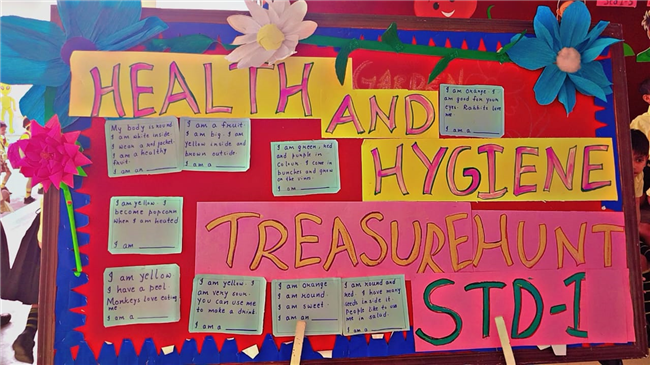 STD-5
HEALTH
AND
HYGIENE
TREASURE HUNT
STD-I
GARDEN
My body is round
I am white inside
I wear a red jacket
I am a healthy
fruit
I am an
I am a fruit
I am big. I am
yellow inside and
brown outside
I am a
I am orange. I
am good for your
eyes. Rabbits love
me
I am a
I am green, red
and purple in
colour. I come in
bunches and grow
on the vines.
I am
I am yellow. I
become popcorn
when I am heated
I am
I am yellow
I have a peel
Monkeys love eating
me
I am a
I am yellow. I
am very sour.
you can use me
to make a drink.
I am a
I am orange
I am round.
I am sweet.
I am an
I am round and
red. I have many
seeds inside it.
People like to use
me in salad.
I am a